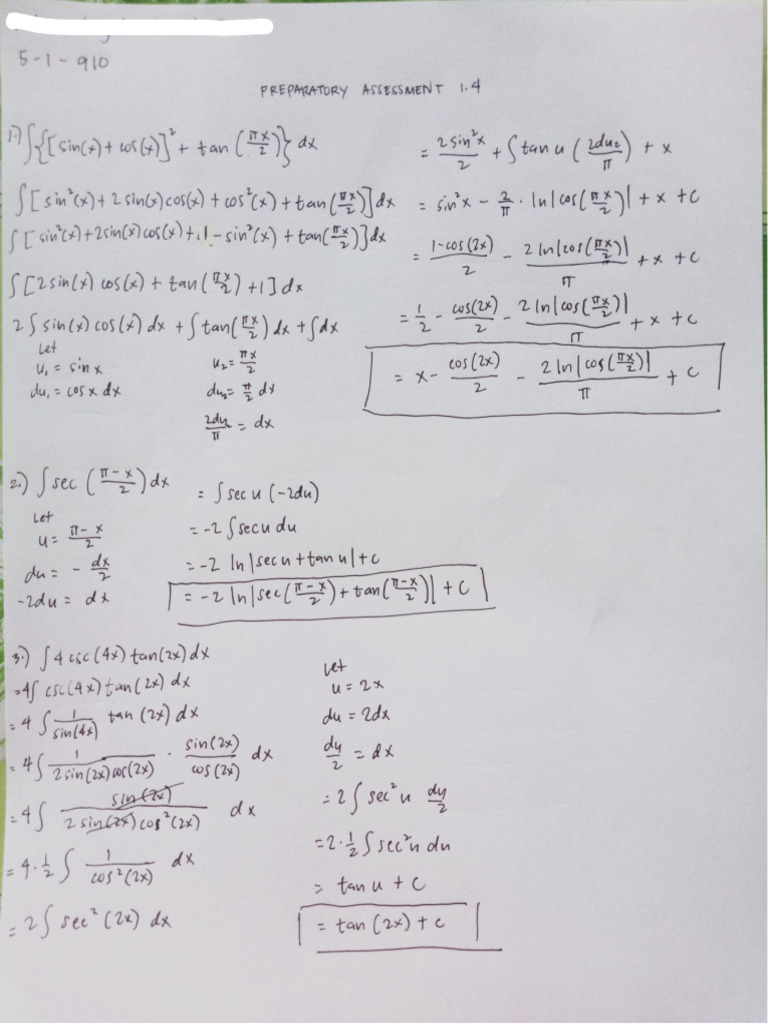 5-1-910
PREPARATORY ASSESSMENT 1.4
1.) ∫{[sin(x)+cos(x)]² + tan(πx/2)} dx
∫[sin²(x)+2sin(x)cos(x)+cos²(x)+tan(πx/2)]dx
∫[sin²(x)+2sin(x)cos(x)+1-sin²(x)+tan(πx/2)]dx
∫[2sin(x)cos(x)+tan(πx/2)+1]dx
2∫sin(x)cos(x)dx+∫tan(πx/2)dx+∫dx
Let
u₁ = sin x
du₁ = cos x dx
u₂ = πx/2
du₂ = π/2 dx
2du₂/π = dx
= 2sin²x/2 + ∫tan u (2du₂/π) + x
= sin²x - 2/π · ln|cos(πx/2)| + x + c
= 1-cos(2x)/2 - 2ln|cos(πx/2)|/π + x + c
= 1/2 - cos(2x)/2 - 2ln|cos(πx/2)|/π + x + c
= x - cos(2x)/2 - 2ln|cos(πx/2)|/π + c
2.) ∫sec(π-x/2)dx
Let
u = π-x/2
du = - dx/2
-2du = dx
= ∫sec u (-2du)
= -2∫sec u du
= -2 ln|sec u + tan u| + c
= -2 ln|sec(π-x/2)+tan(π-x/2)| + c
3.) ∫4csc(4x)tan(2x)dx
=4∫csc(4x)tan(2x)dx
= 4∫1/sin(4x) tan(2x)dx
= 4∫1/2sin(2x)cos(2x) · sin(2x)/cos(2x) dx
= 4∫sin(2x)/2sin(2x)cos²(2x) dx
= 4·1/2∫1/cos²(2x) dx
= 2∫sec²(2x)dx
Let
u = 2x
du = 2dx
du/2 = dx
= 2∫sec²u du/2
= 2·1/2∫sec²u du
= tan u + c
= tan(2x) + c